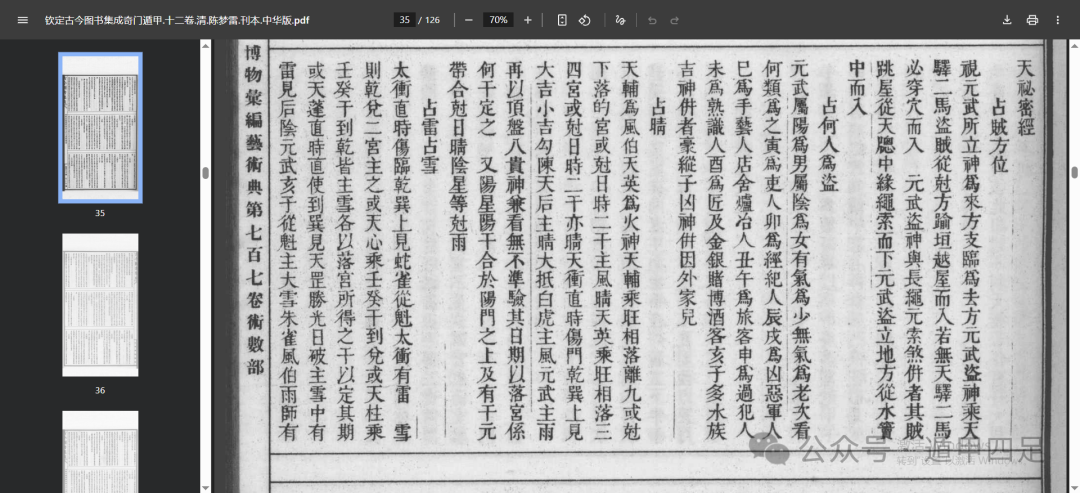 钦定古今图书集成奇门遁甲.十二卷.清.陈梦雷.刊本.中华版.pdf
35 / 126
70%
35
36
天祕密經
占賊方位
視元武所立神爲來方支臨爲去方元武盜神乘天
驛二馬盜賊從尅方踰垣越屋而入若無天驛二馬
必穿穴而入 元武盜神與長繩元索煞併者其賊
跳屋從天牕中緣繩索而下元武盜立地方從水竇
中而入
占何人爲盜
元武屬陽爲男屬陰爲女有氣爲少無氣爲老次看
何類爲之寅爲吏人卯爲經紀人辰戌爲凶惡軍人
巳爲手藝人店舍爐冶人丑午爲旅客申爲過犯人
未爲熟識人酉爲匠及金銀賭博酒客亥子多水族
吉神併者豪縱子凶神併因外家兒
占晴
天輔爲風伯天英爲火神天輔乘旺相落離九或尅
下落的宮或尅日時二干主風晴天英乘旺相落三
四宮或尅日時二干亦晴天衝直時傷門乾巽上見
大吉小吉勾陳天后主晴大抵白虎主風元武主雨
再以頂盤八貴神兼看無不準驗其日期以落宮係
何干定之 又陽星陽干合於陽門之上及有干元
帶合尅日晴陰星等尅雨
占雷占雪
太衝直時傷臨乾巽上見蛇雀從魁太衝有雷 雪
則乾兌二宮主之或天心乘壬癸干到兌或天柱乘
壬癸干到乾皆主雪各以落宮所得之干以定其期
或天蓬直時直使到巽見天罡勝光日破主雪中有
雷見后陰元武亥子從魁主大雪朱雀風伯雨師有
博物彙編藝術典第七百七卷術數部
公众号 遁甲四足